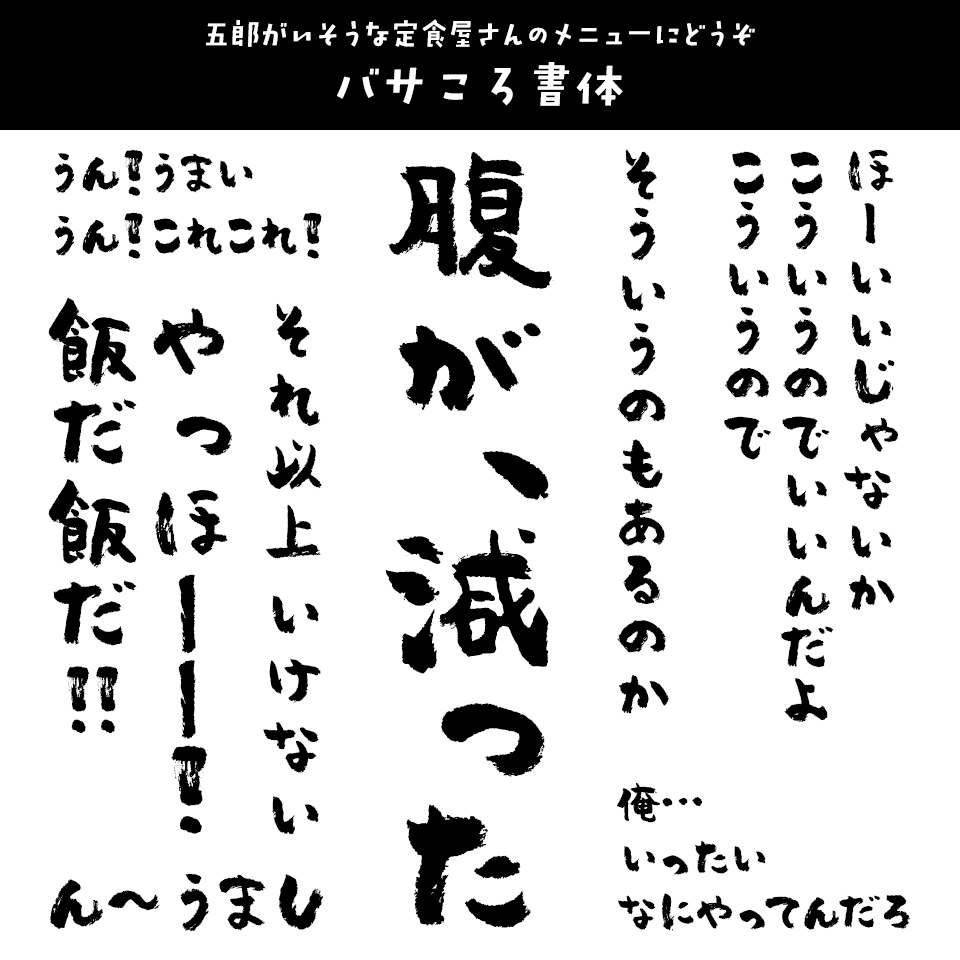 五郎がいそうな定食屋さんのメニューにどうぞ
バサころ書体
ほーいいじゃないか
こういうのでいいんだよ
こういうので
そういうのもあるのか
俺…
いったい
なにやってんだろ
腹が、減った
うん！うまい
うん！これこれ！
それ以上いけない
やっほーー！
飯だ飯だ！！
ん～うまし